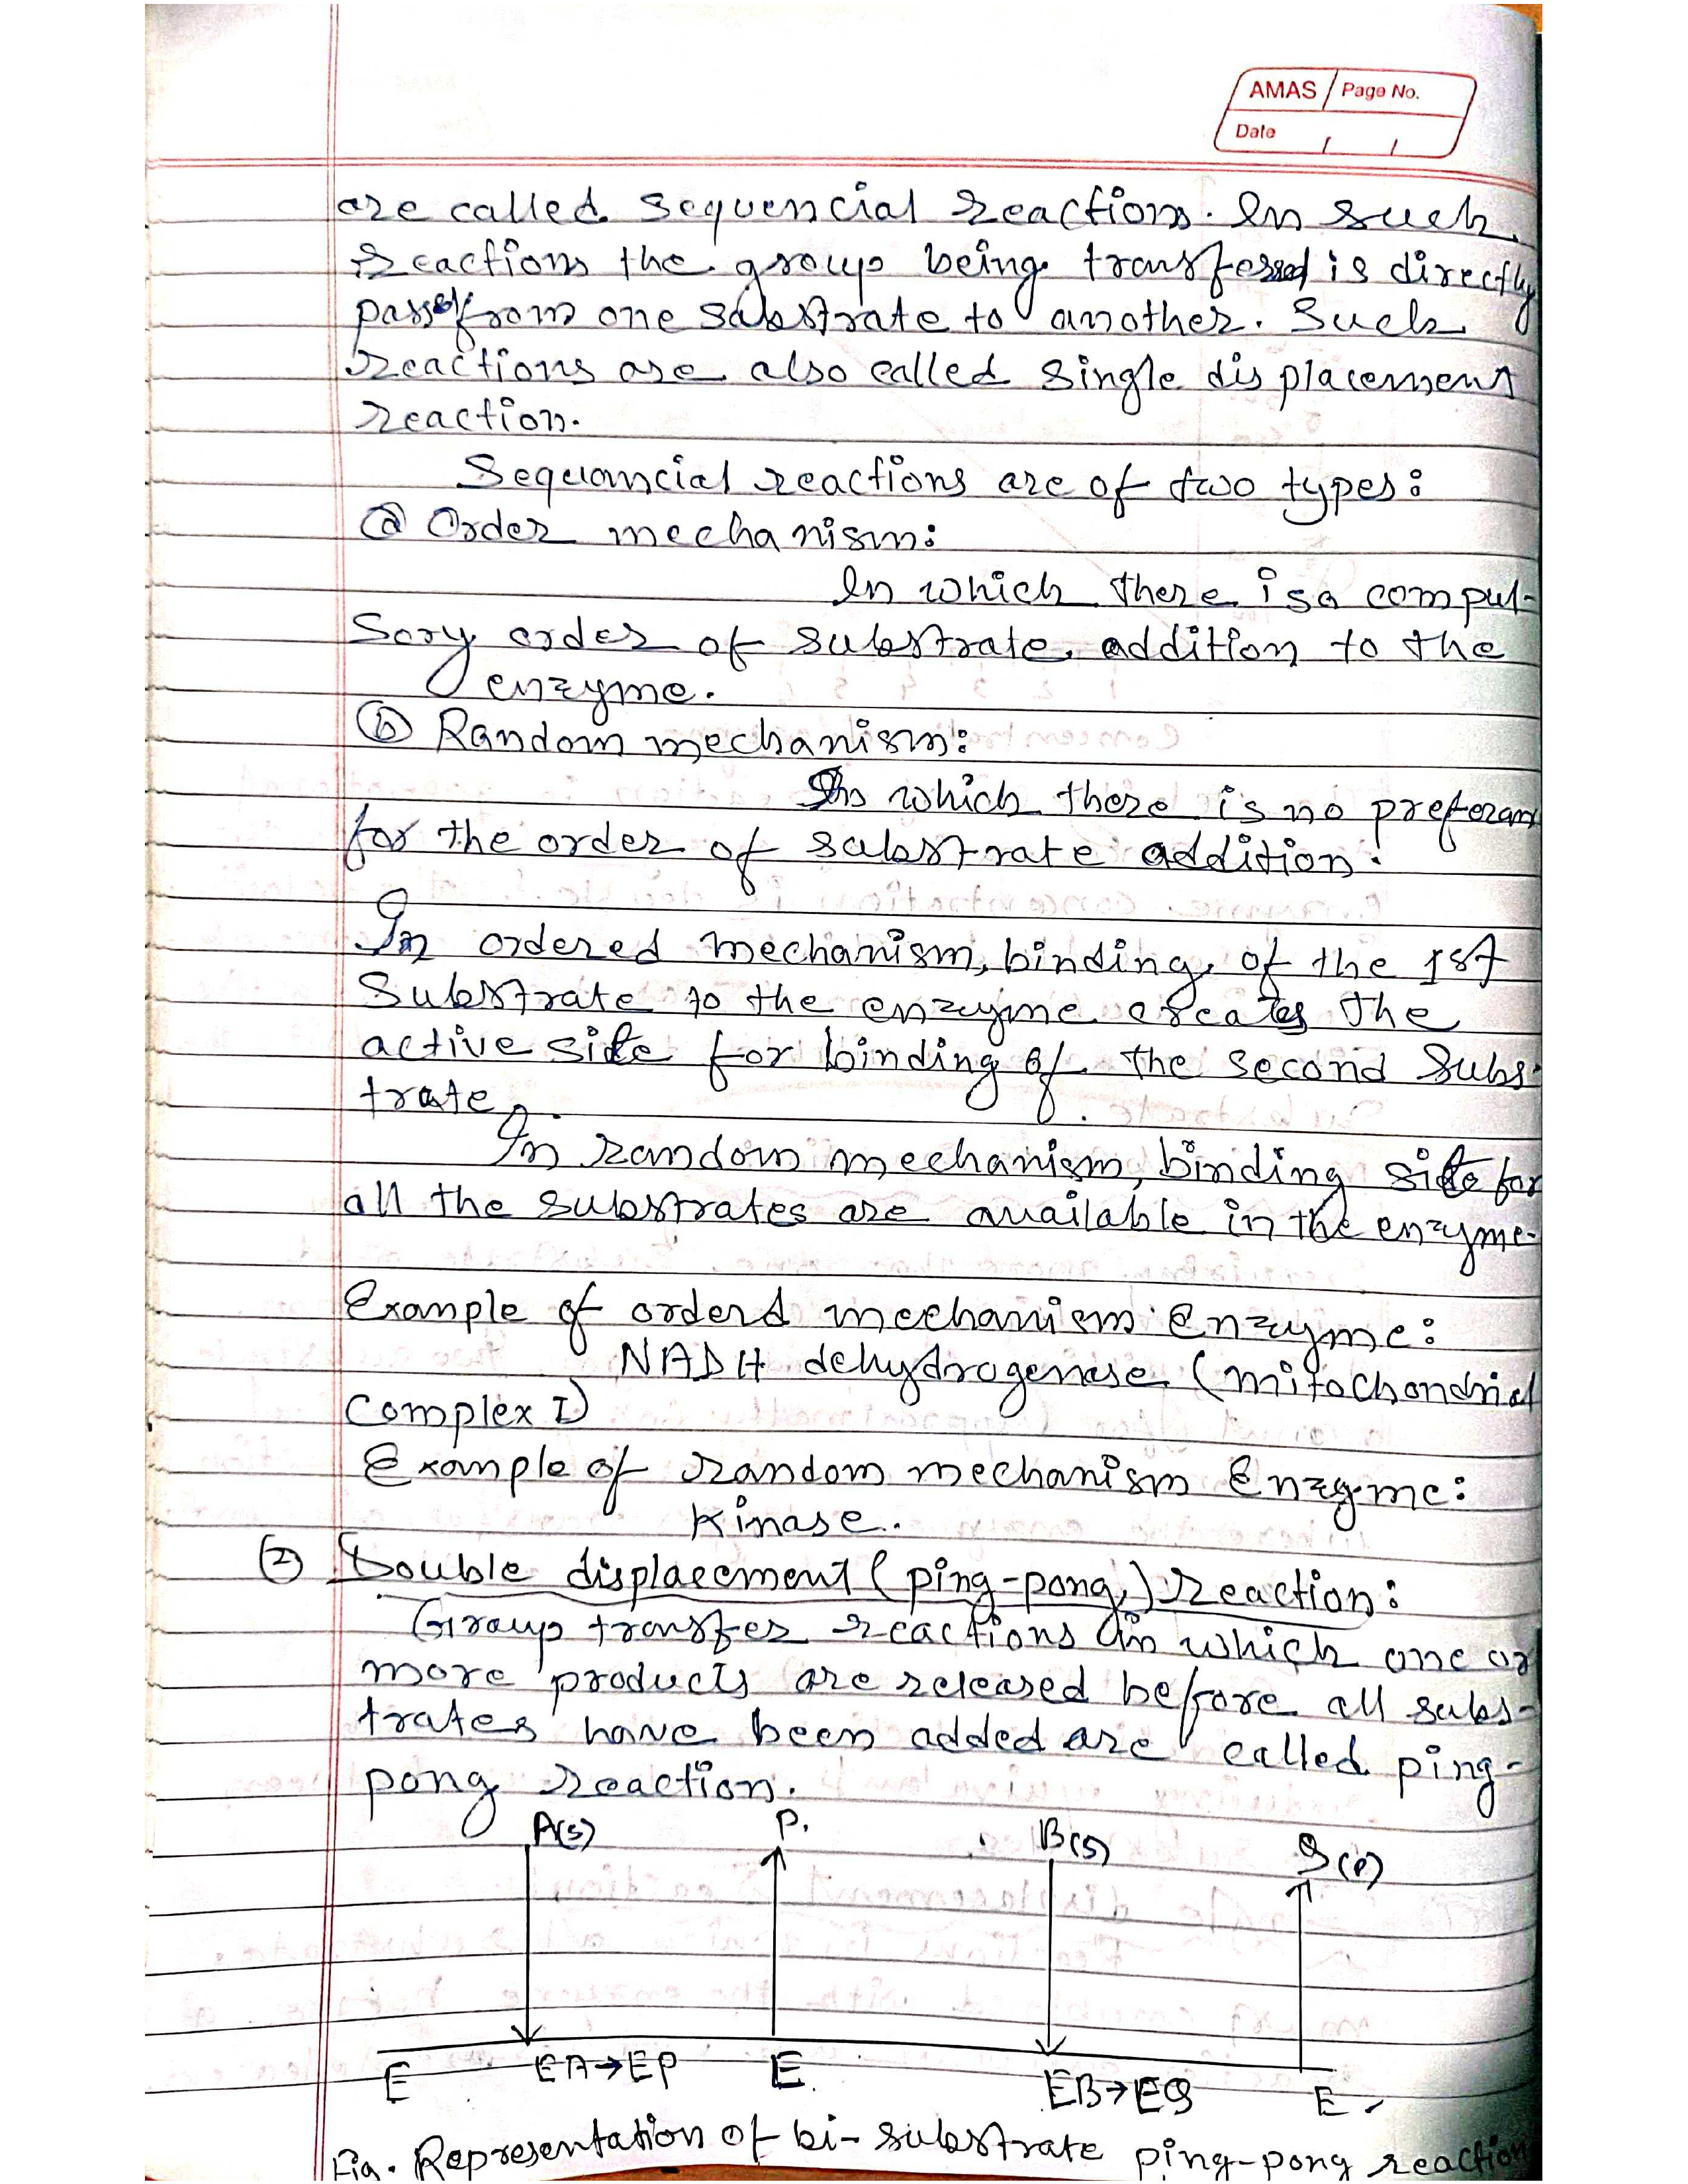 AMAS Page No.
Date / /
are called sequencial reactions. In such
reactions the group being transferred is directly
pass from one substrate to another. Such
reactions are also called single displacement
reaction.
Sequancial reactions are of two types:
ⓐ Order mechanism:
In which there is a compul-
sory order of substrate addition to the
enzyme.
ⓑ Random mechanism:
In which there is no preferan
for the order of substrate addition.
In ordered mechanism, binding of the 1st
Substrate to the enzyme creates the
active site for binding of the second subs-
trate.
In random mechanism, binding site for
all the substrates are available in the enzyme.
Example of orderd mechanism enzyme:
NADH dehydrogenase (mitochondrial
Complex I)
Example of random mechanism Enzyme:
Kinase.
② Double displacement (ping-pong) reaction:
Group transfer reactions in which one or
more products are released before all subs-
trates have been added are called ping-
pong reaction.
A(S) P. B(S) Q(P)
E EA→EP E EB→EQ E
Fig. Representation of bi-substrate ping-pong reaction